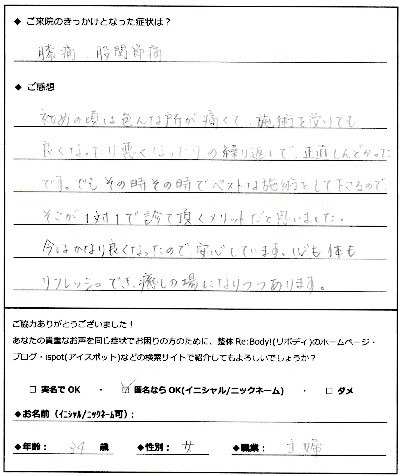 ◆ ご来院のきっかけとなった症状は？
膝痛、股関節痛
◆ ご感想
初めの頃は色んな所が痛くて、施術を受けても
良くなったり悪くなったりの繰り返しで、正直しんどかった
です。でもその時その時でベストな施術をして下さるので
そこが1対1で診て頂くメリットだと思いました。
今はかなり良くなったので安心しています。心も体も
リフレッシュでき、癒しの場になりつつあります。
ご協力ありがとうございました！
あなたの貴重なお声を同じ症状でお困りの方のために、整体 Re:Body!(リボディ)のホームページ・
ブログ・ispot(アイスポット)などの検索サイトで紹介してもよろしいでしょうか？
□ 実名で OK ・ ☑ 匿名なら OK(イニシャル/ニックネーム) ・ □ ダメ
◆お名前（イニシャル/ニックネーム可）:
◆年齢： 34 歳 ◆性別： 女 ◆職業： 主婦